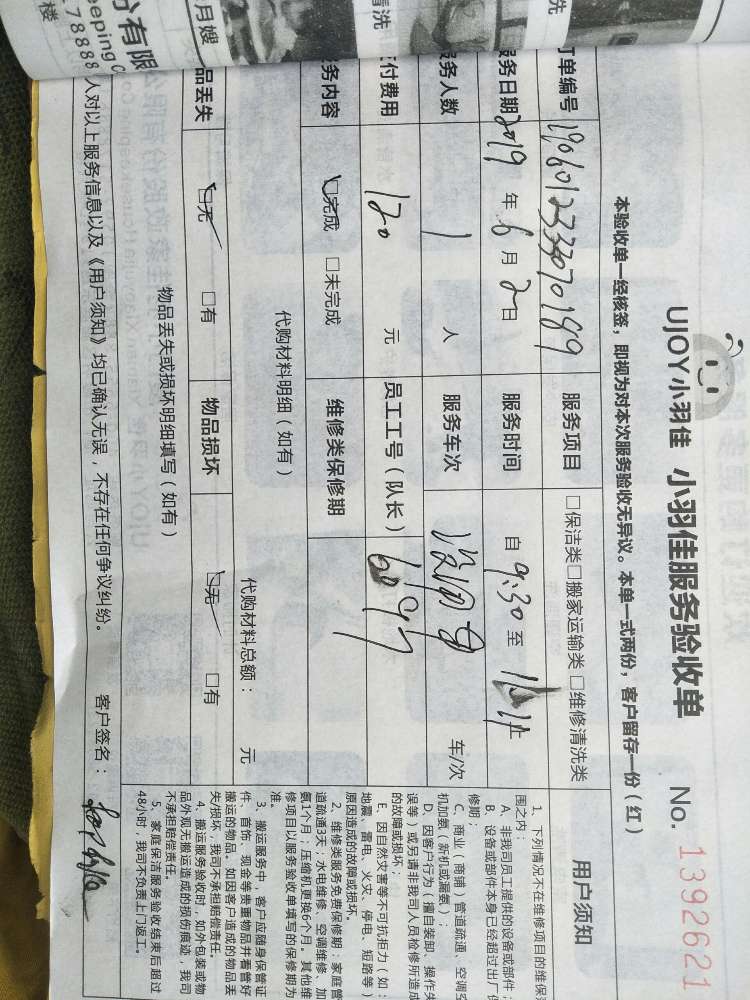 份有限
eeping C
78888
楼
月嫂
清洗
洗
UJOY小羽佳 小羽佳服务验收单 No. 1392621
本验收单一经核签，即视为对本次服务验收无异议。本单一式两份，客户留存一份（红）
订单编号 190601233370189 服务项目 □保洁类□搬家运输类□维修清洗类
服务日期 2019 年 6 月 2 日 服务时间 自 9:30 至 止
服务人数 1 人 服务车次 车/次
支付费用 120 元 员工工号（队长）
服务内容 □完成 □未完成 维修类保修期
代购材料明细（如有） 代购材料总额： 元
品丢失 □无 □有 物品损坏 □无 □有
物品丢失或损坏明细填写（如有）
人对以上服务信息以及《用户须知》均已确认无误，不存在任何争议纠纷。 客户签名：
用户须知
1、下列情况不在维修项目的维保
围之内：
A、非我司员工提供的设备或部件；
B、设备或部件本身已经超过出厂
修期；
C、商业（商铺）管道疏通、空调
机加氨（新机或漏氨）；
D、因客户行为（擅自装卸、操作失
误等）或另请非我司人员检修所造成
的故障或损坏；
E、因自然灾害等不可抗拒力（如：
地震、雷电、火灾、停电、短路等）
原因造成的故障或损坏
2、维修类服务免费保修期：家庭管
道疏通3天；水电维修、空调维修、加
氨1个月；压缩机更换6个月。其他维
修项目以服务验收单填写的保修期为
准。
3、搬运服务中，客户应随身保管证
件、首饰、现金等贵重物品并看管好
搬运的物品。如因客户造成的物品丢
失/损坏，我司不承担赔偿责任。
4、搬运服务验收时，如外包装或物
品外观无搬运造成的损伤痕迹，我司
不承担赔偿责任。
5、家庭保洁服务验收结束后超过
48小时，我司不负责上门返工。